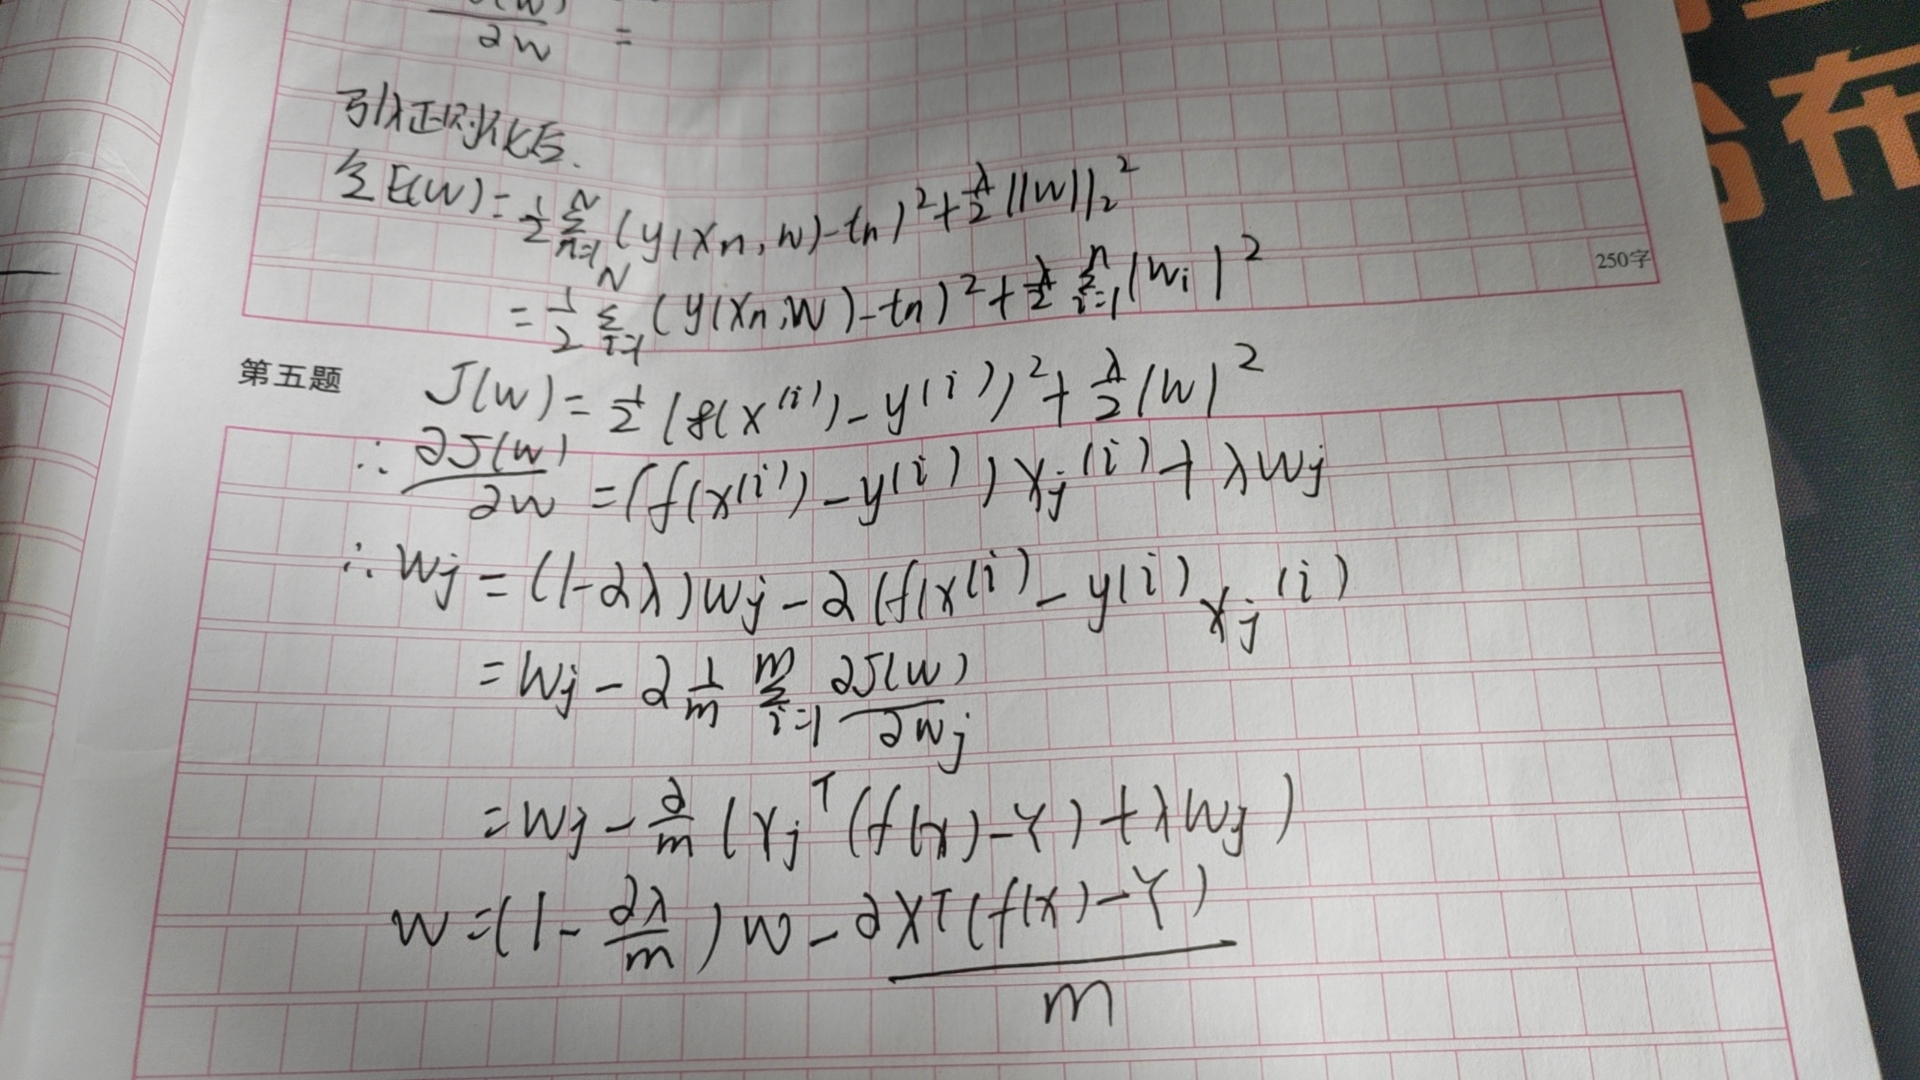 ∂w =
引入正则化后.
令E(W)=½ Σ_{n=1}^{N} (y(xn,w)-tn)²+λ/2 ||w||₂²
=½ Σ_{i=1}^{N} (y(xn,w)-tn)²+λ/2 Σ_{i=1}^{n} |wi|²
250字
第五题
J(w)=½ (f(x^(i))-y^(i))²+λ/2 |w|²
∴ ∂J(w)/∂w =(f(x^(i))-y^(i))xj^(i)+λwj
∴ wj =(1-∂λ)wj-∂(f(x^(i)-y^(i))xj^(i)
=wj-∂ 1/m Σ_{i=1}^{m} ∂J(w)/∂wj
=wj-∂/m (xj^T(f(x)-Y)+λwj)
w=(1-∂λ/m)w-∂X^T(f(x)-Y)/m
布